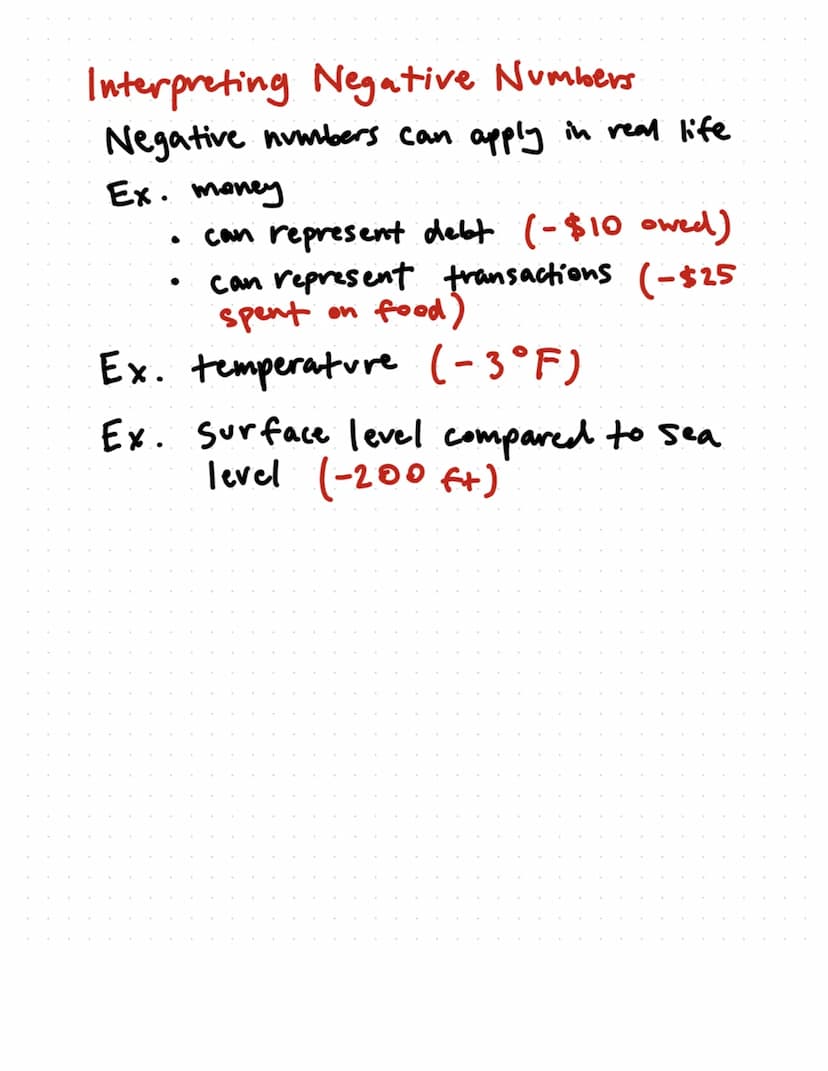 Interpreting Negative Numbers
Negative numbers can apply in real life
Ex. money
• can represent debt (-$10 owed)
• can represent transactions (-$25
spent on food)
Ex. temperature (-3°F)
Ex. surface level compared to sea
level (-200 ft)